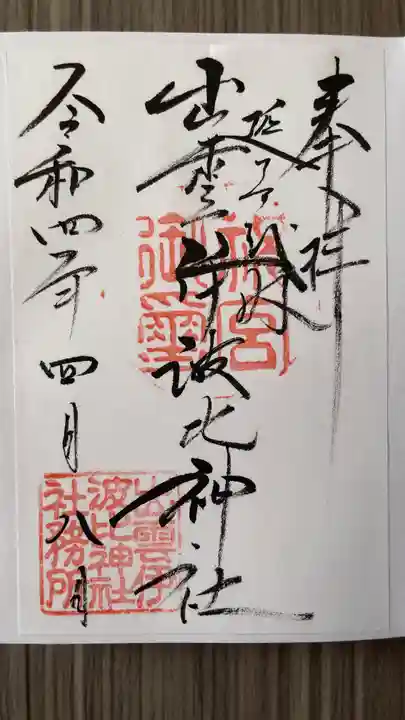 奉拝
延喜式内
出雲伊波比神社
令和四年四月八日
出雲伊
波比神社
社務所